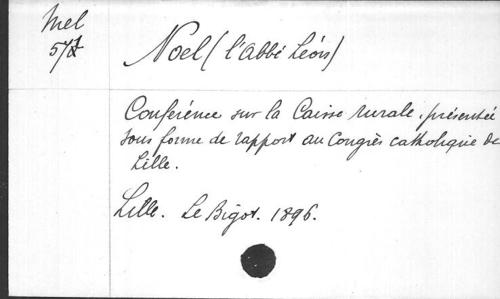 Mel
57
Noel (l'abbé Léon)
Conférence sur la Caisse rurale, présentée
sous forme de rapport au Congrès catholique de
Lille.
Lille. Le Bigot. 1896.